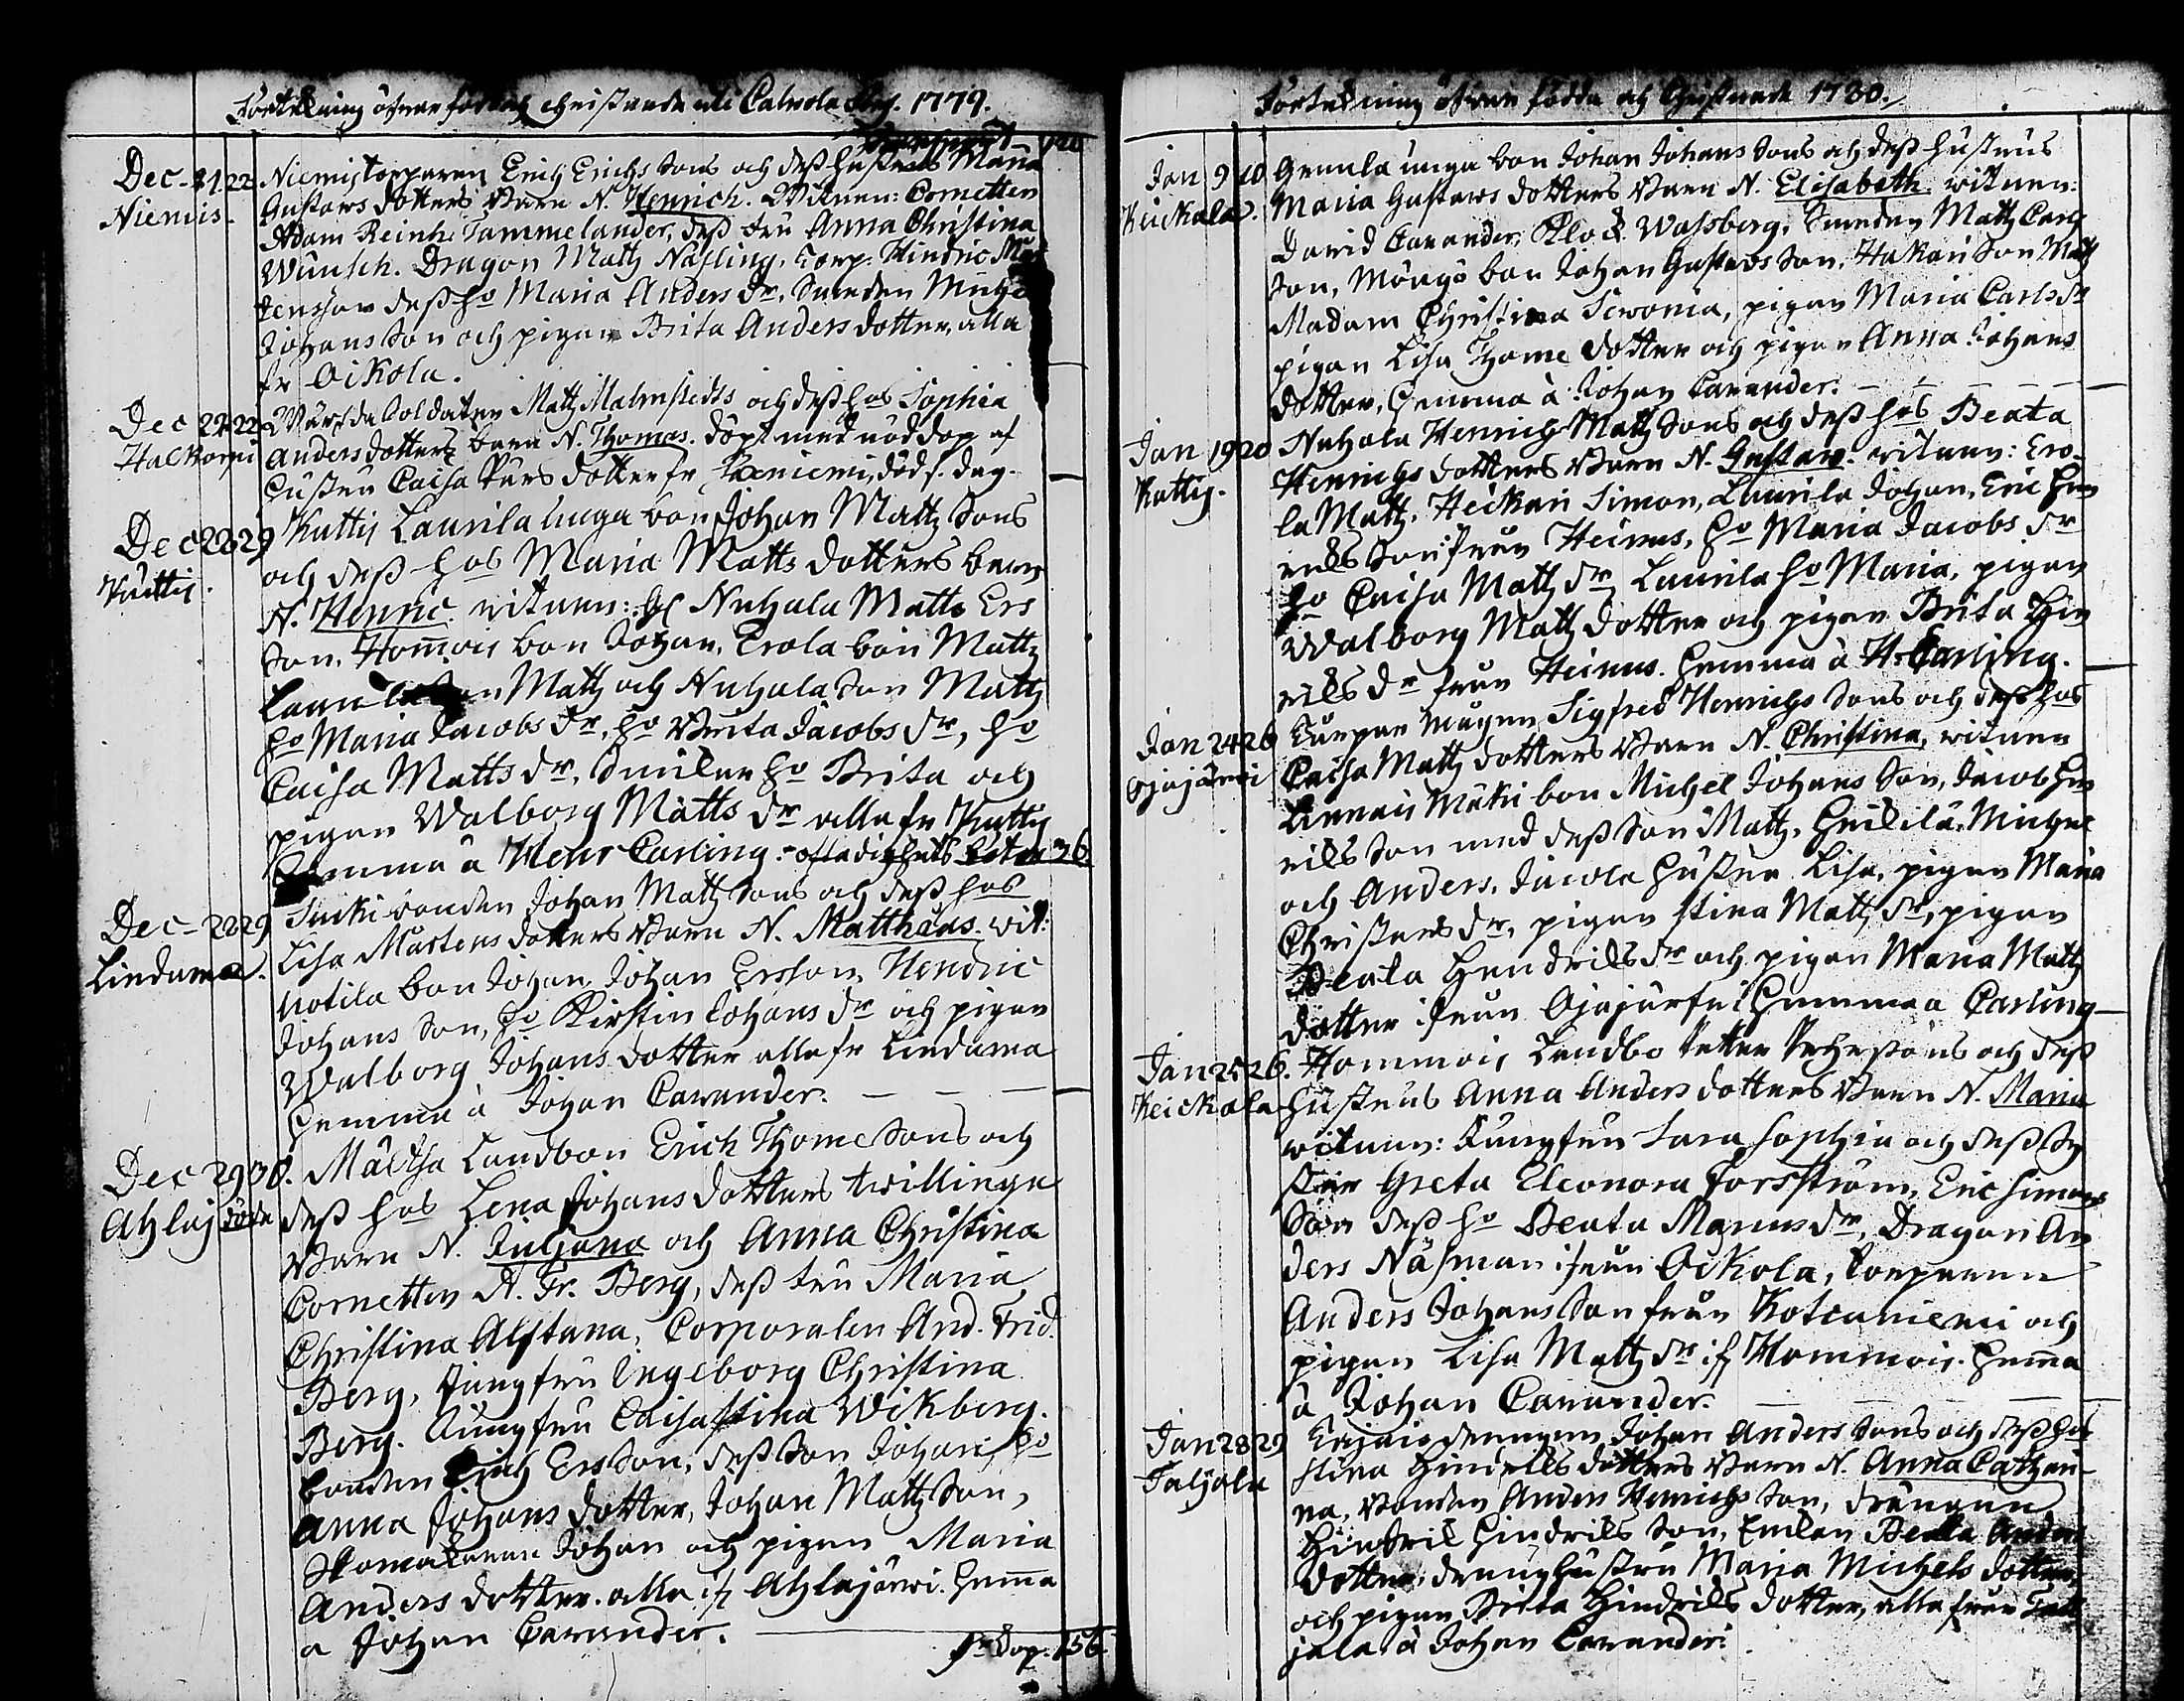 Förtekning öfwer födde och christnade uti Calwola Sokn. 1779.
Transport 120
Dec. 21 22 Niemis torparen Erich Erichs Sons och dess hustrus Maria
Niemis. Gustavs dotters Barn N. Henrich. Witnen: Cornetten
Adam Reinh. Tammelander, dess fru Anna Christina
Wünsch. Dragon Matts Näsling, Corp. Hindric Mår
tensson dess ho Maria Anders dr, Smeden Michel
Johans Son och pigan Brita Anders dotter, alla
fr Oickola.
Dec 22 22 Soldaten Matts Malmstedts och dess hos Sophia
Halkorpi Anders dotters barn N. Thomas. döpt med nöddop af
hustru Caisa Pärs dotter fr Taniemi, död s. dag.
Dec 28 29 Kuttis Laurila unga bon Johan Matts Sons
Kuttis. och dess hos Maria Matts dotters barn
N. Henric. witnen: Nuhala Matts Ers
Son, Homois bon Johan, Erola bon Matts
Laurila Son Matts och Nuhala Son Matts
ho Maria Jacobs dr, ho Brita Jacobs dr, ho
Caisa Matts dr, ho Brita och
pigan Walborg Matts dr alla fr Kuttis
hemma a Henr Carling.
Dec. 28 29 Sucki bonden Johan Matts Sons och dess hos
Lindama. Lisa Mårtens dotters Barn N. Matthæus. wit:
Uotila bon Johan, Johan Ersson, Hendric
Johans Son, ho Kirstin Johans dr och pigan
Walborg Johans dotter alla fr Lindama
hemma a Johan Cavander.
Dec 29 30. Landbon Erich Thome Sons och
Ahlaj dess hos Lena Johans dotters twillinga
Barn N. Juliana och Anna Christina
Cornetten A. Fr. Berg, dess fru Maria
Christina Alstana, Corporalen And. Frid.
Berg, Jungfru Ingeborg Christina
Berg. Jungfru Caisa Stina Wikberg.
bonden Erich Ersson, dess Son Johan, ho
Anna Johans dotter, Johan Matts Son,
Skomakaren Johan och pigan Maria
Anders dotter. alla if Ahlajärwi. hemma
a Johan Cavander.
Sr dop. 156
Förtekning öfwer födda och Christnade 1780.
Jan 9 10 Gemla unga bon Johan Johans Sons och dess hustrus
Keickala. Maria Gustaws dotters Barn N. Elisabeth. witnen:
David Cavander, Klock. Wassberg, Smeden Matts Carls
Son, bon Johan Gustavs Son, Hakari Son Matts
Madam Christina Sevonia, pigan Maria Carls dr
pigan Lisa Thome dotter och pigan Anna Johans
dotter, hemma à Johan Cavander.
Jan 19 20 Nuhala Henrich Matts Sons och dess hos Beata
Kuttis. Henrichs dotters Barn N. Gustaw. witnen: Ero-
la Matts, Heikari Simon, Laurila Johan, Eric Hen
riks Son från Heinus, ho Maria Jacobs dr
ho Caisa Matts dr Laurila ho Maria, pigan
Walborg Matts dotter och pigan Brita Hin
riks dr från Heinus. hemma à H. Carling.
Jan 24 26 Sigfred Henrichs Sons och dess hos
Ojajärwi Caisa Matts dotters Barn N. Christina, witnen
Mäki bon Michel Johans Son, Jacob Hen
riks Son med dess Son Matts, Michel
och Anders, hustru Lisa, pigan Maria
Christers dr, pigan Stina Matts dr, pigan
Beata Hendriks dr och pigan Maria Matts
dotter ifrån Ojajärfwi hemma a Carling
Jan 25 26. Hommois Landbo Petter Sons och dess
Keickala hustrus Anna Anders dotters Barn N. Maria
witnen: Jungfrun Sara Sophia och dess Sy
ster Greta Eleonora Forsström, Eric Simons
Son dess ho Beata Manus dr, Dragon An
ders Näsman ifrån Oikola, torparen
Anders Johans Son från Kotcaniemi och
pigan Lisa Matts dr if Hommois. hemma
à Johan Cavander.
Jan 28 29 drengen Johan Anders Sons och dess hos
Taljala Stina Hindriks dotters Barn N. Anna Cathari-
na, bonden Anders Henrichs Son, drängen
Hindric Hindriks Son, Beata Anders
dotter, dräng hustru Maria Michels dotter,
och pigan Brita Hindriks dotter, alla från Tal
jala à Johan Cavander.